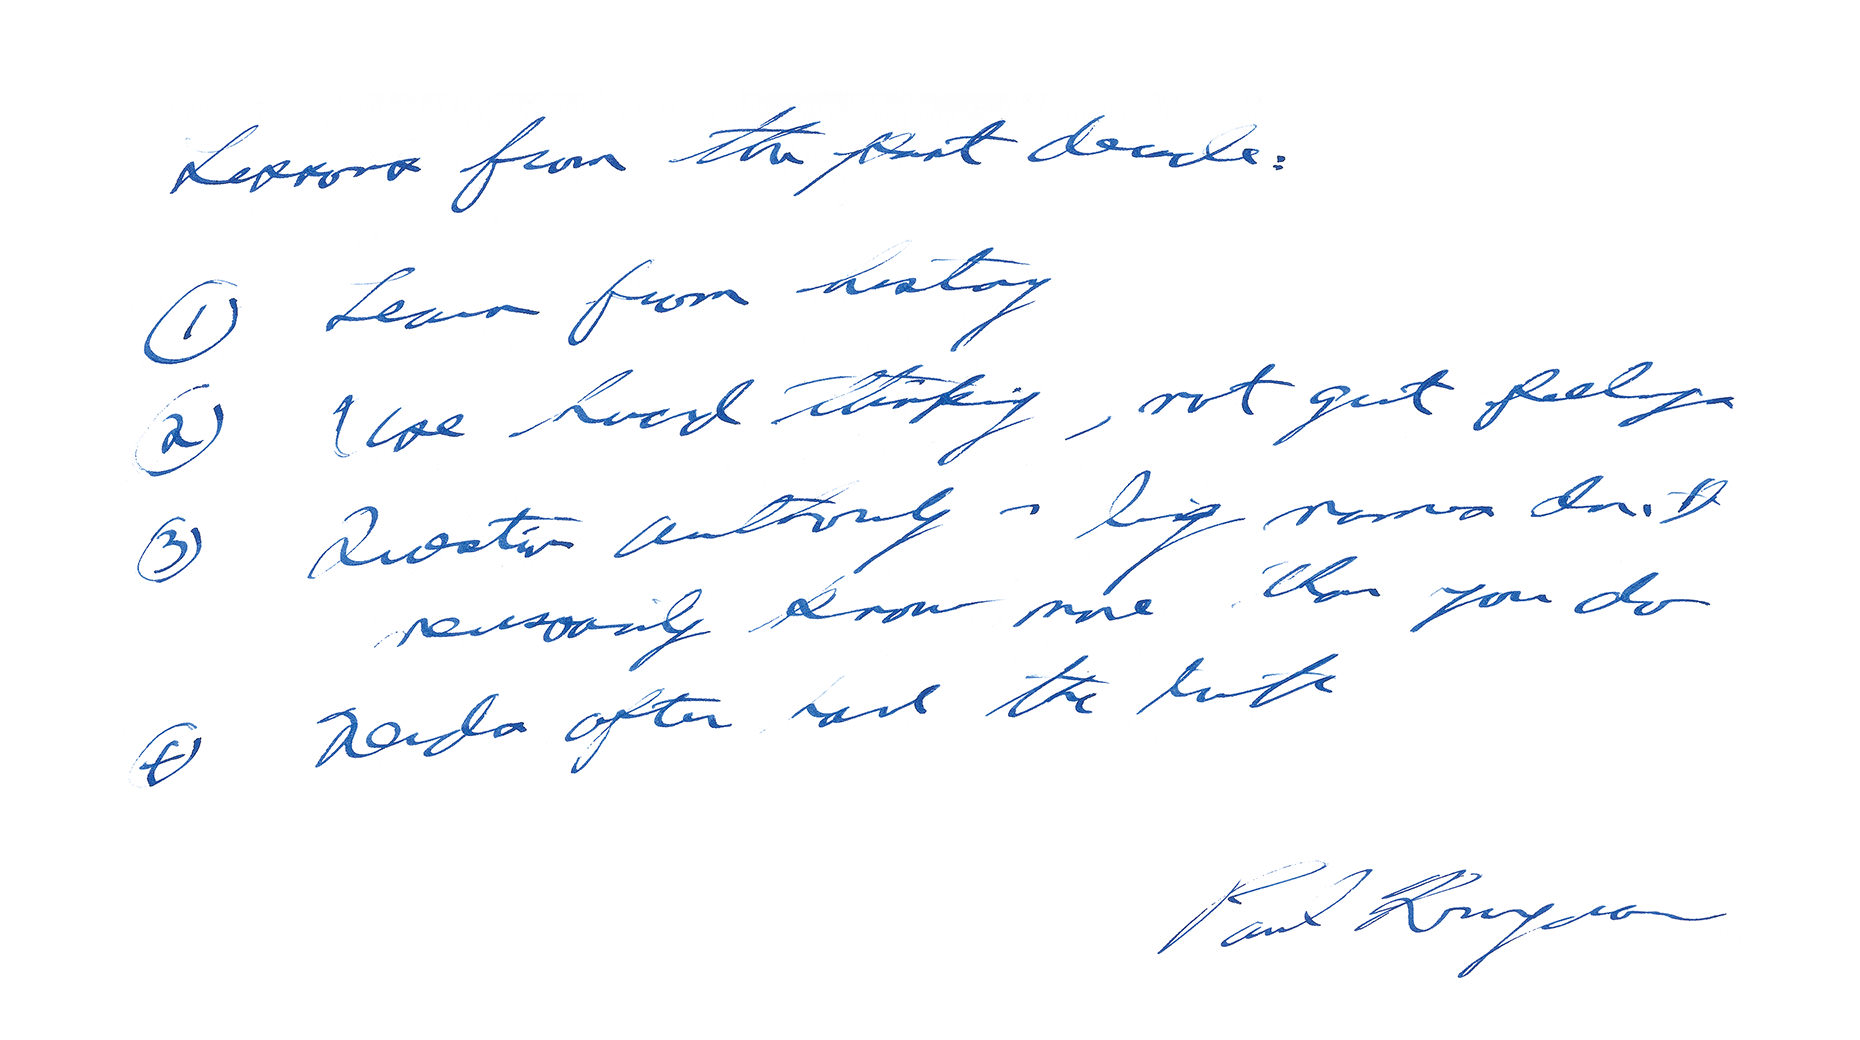 Lessons from the past decade:
1 Learn from history
2 Use hard thinking, not gut feelings
3 Question authority - big names don't
necessarily know more than you do
4 Nerds often have the truth
Paul Krugman